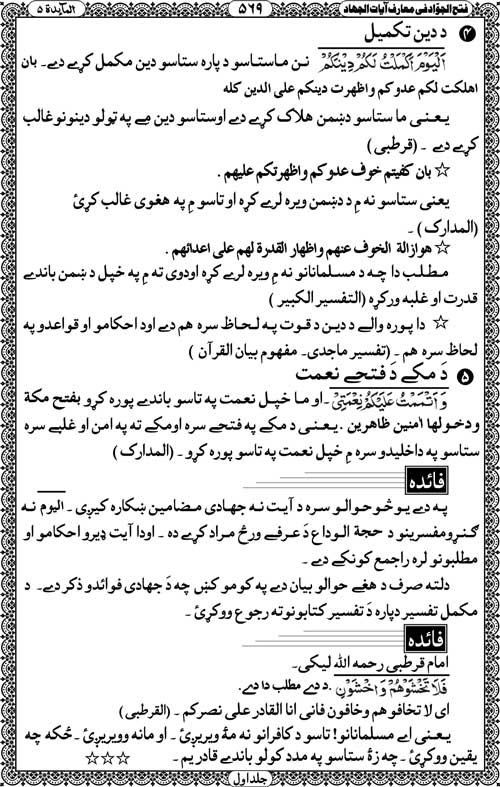 المآيدة ۵
۵۶۹
فتح الجوّاد فی معارف آیات الجهاد
۴ د دین تکمیل
اَلْیَوْمَ اَکْمَلْتُ لَکُمْ دِیْنَکُمْ نن ماستاسو د پاره ستاسو دین مکمل کړے دے۔ بان
اهلکت لکم عدوکم واظهرت دینکم علی الدین کله
یعنی ما ستاسو دښمن هلاک کړے دے اوستاسو دین مے په ټولو دینونو غالب
کړے دے ۔ (قرطبی)
☆ بان کفیتم خوف عدوکم واظهرتکم علیهم .
یعنی ستاسو نه مِ د دښمن ویره لرے کړه او تاسو مِ په هغوی غالب کړئ
(المدارک) ۔
☆ هوازالة الخوف عنهم واظهار القدرة لهم علی اعدائهم .
مطلب دا چه د مسلمانانو نه مِ ویره لرے کړه اودوی ته مِ په خپل دښمن باندے
قدرت او غلبه ورکړه (التفسیر الکبیر)
☆ دا پوره والے د دین د قوت په لحاظ سره هم دے اود احکامو او قواعدو په
لحاظ سره هم ۔ (تفسیر ماجدی۔ مفهوم بیان القرآن)
۵ دَ مکے دَ فتحے نعمت
وَاَتْمَمْتُ عَلَیْکُمْ نِعْمَتِیْ ۔او ما خپل نعمت په تاسو باندے پوره کړو بفتح مکة
ودخولها امنین ظاهرین . یعنی د مکے په فتحے سره اومکے ته په امن او غلبے سره
ستاسو په داخلیدو سره مِ خپل نعمت په تاسو پوره کړو۔ (المدارک)
فائده
په دے یو څو حوالو سره د آیت نه جهادی مضامین ښکاره کیږی ۔ الیوم نه
ګنړو مفسرینو د حجة الوداع دَ عرفے ورځ مراد کړے ده ۔ اودا آیت ډیرو احکامو او
مطلبونو لره راجمع کونکے دے ۔
دلته صرف د هغے حوالو بیان دے په کومو کښ چه دَ جهادی فوائدو ذکر دے۔ د
مکمل تفسیر دپاره دَ تفسیر کتابونو ته رجوع ووکړئ ۔
فائده
امام قرطبی رحمه الله لیکی۔
فَلَا تَخْشَوْهُمْ وَاخْشَوْنِ . د دے مطلب دا دے.
ای لا تخافوهم وخافون فانی انا القادر علی نصرکم ۔ (القرطبی)
یعنی اے مسلمانانو! تاسو د کافرانو نه مهٔ ویریږئ ۔ او مانه وویریږئ ۔ ځکه چه
یقین ووکړئ ۔ چه زهٔ ستاسو په مدد کولو باندے قادر یم ۔ ☆☆☆
جلد اول